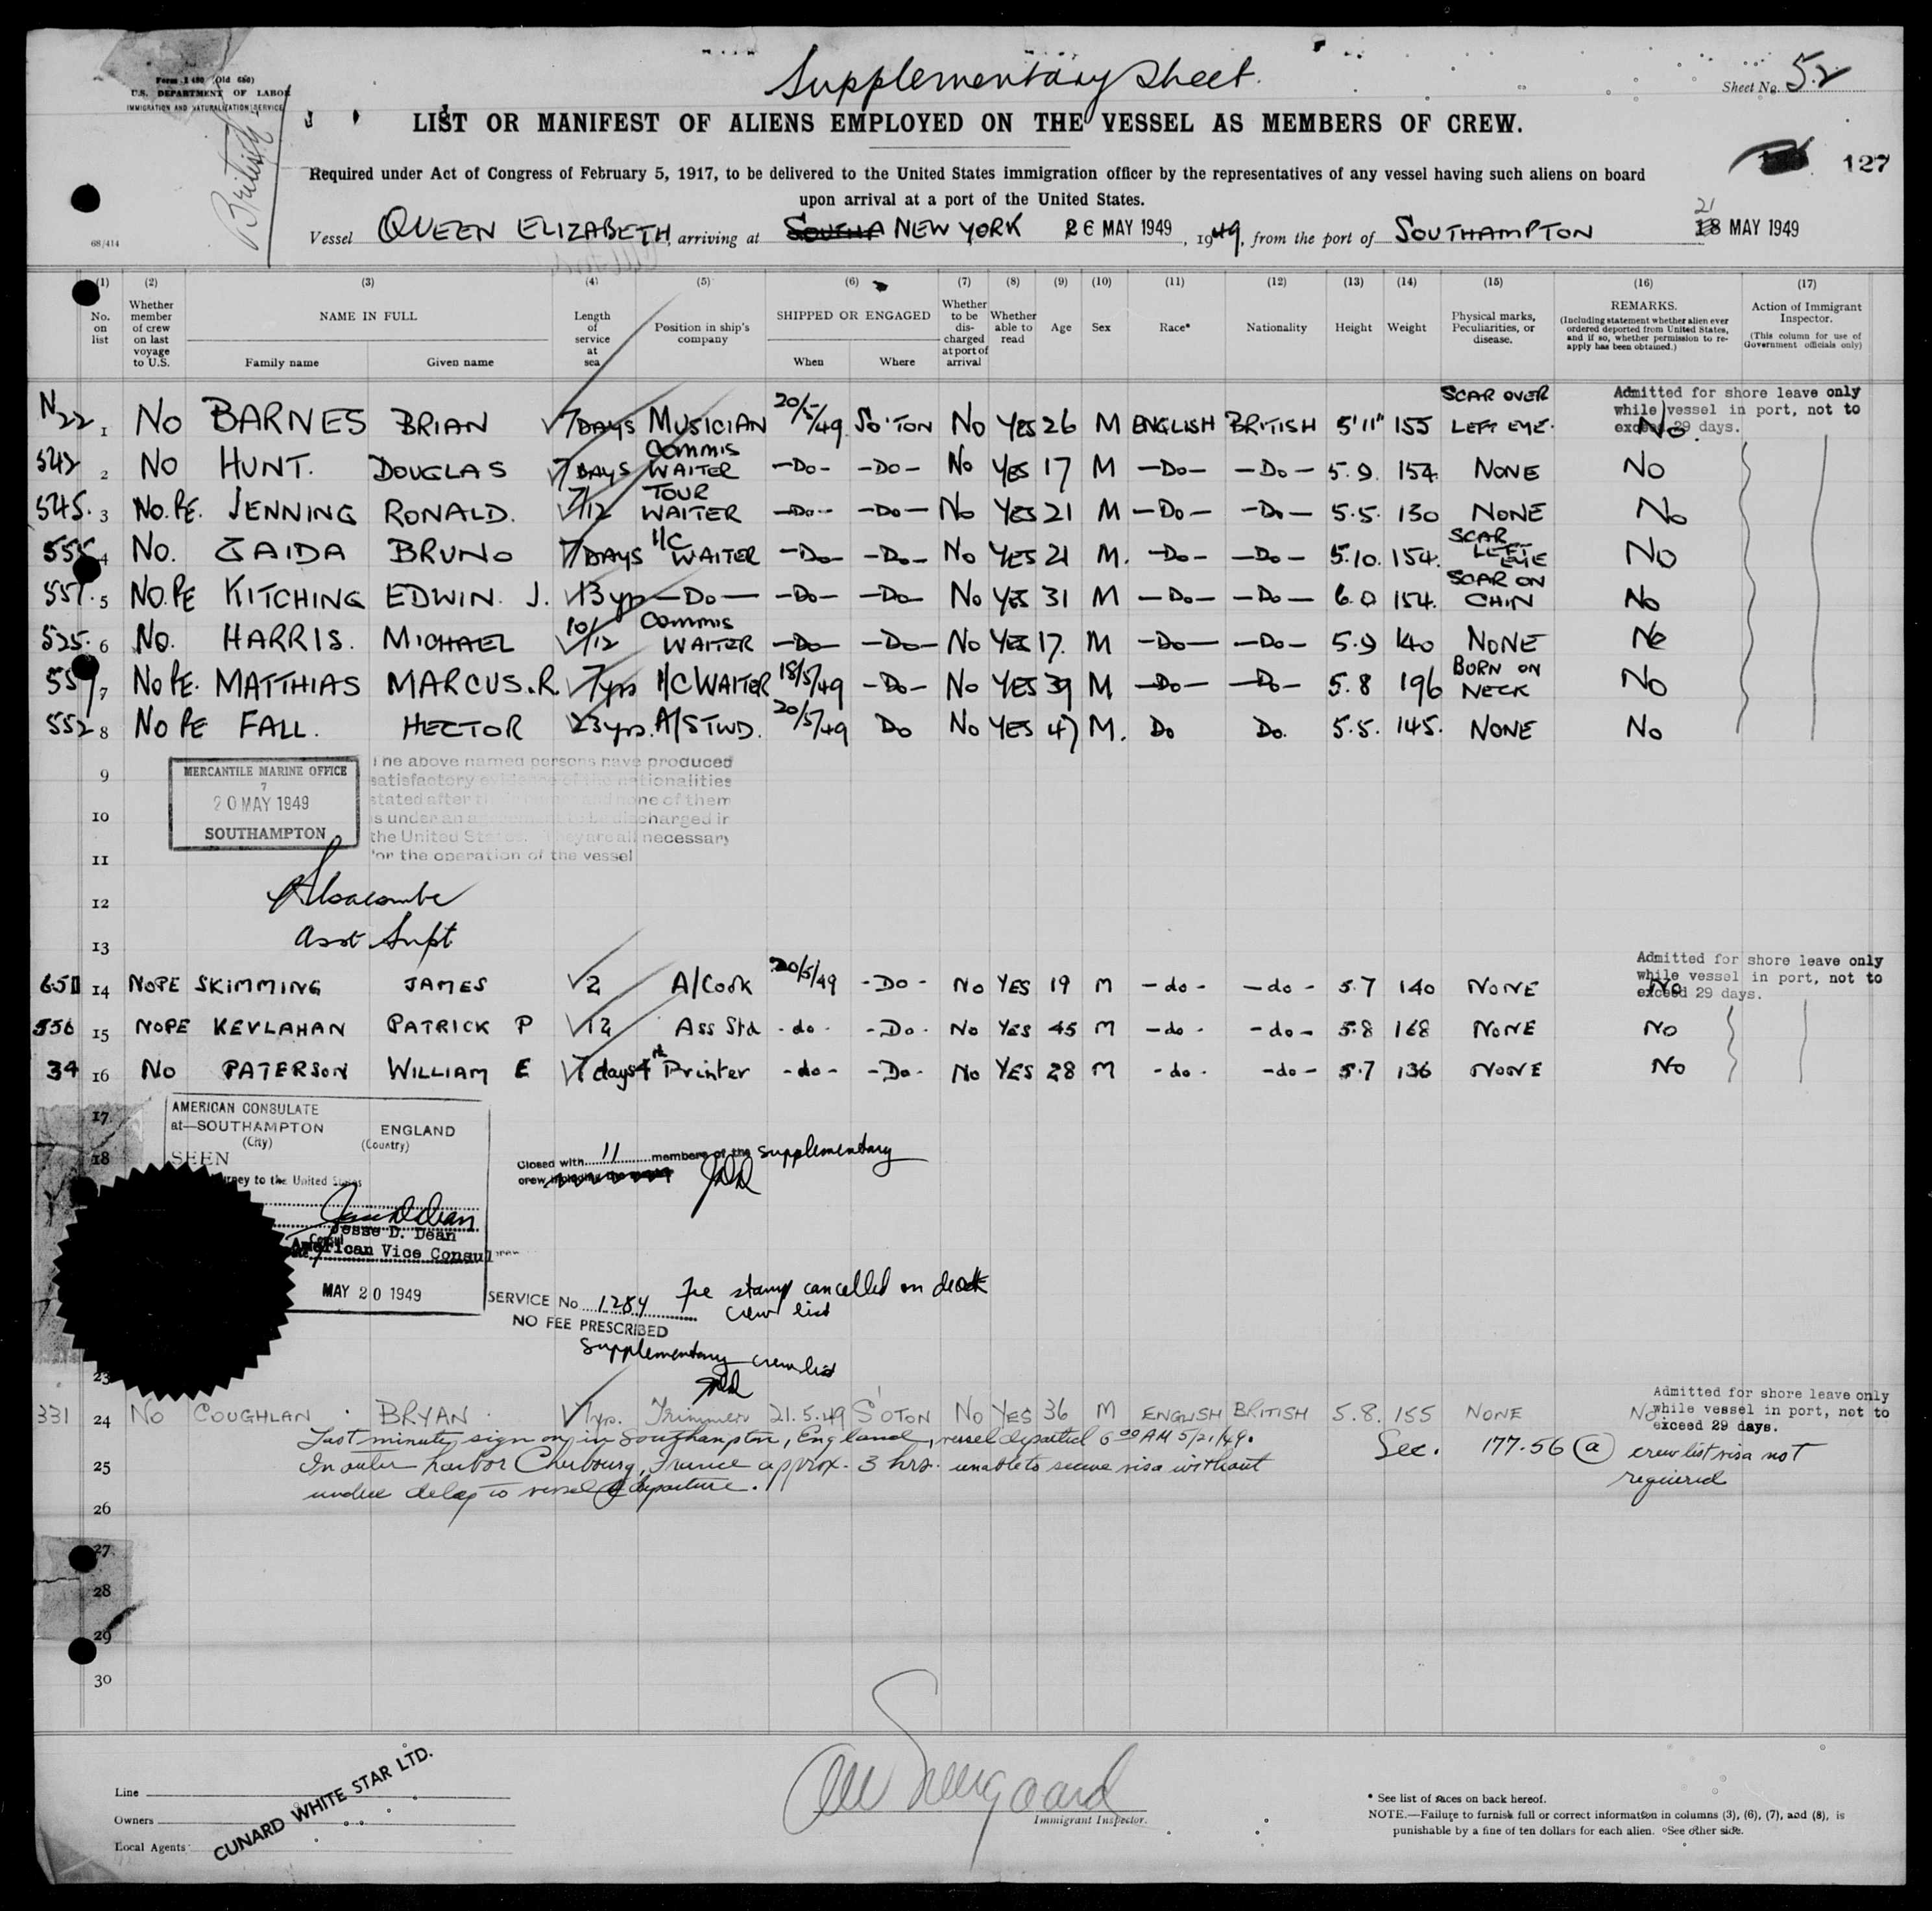 Supplementary Sheet.
Form 1 480 (Old 680)
U.S. DEPARTMENT OF LABOR
IMMIGRATION AND NATURALIZATION SERVICE
British
Sheet No. 52
LIST OR MANIFEST OF ALIENS EMPLOYED ON THE VESSEL AS MEMBERS OF CREW.
127
Required under Act of Congress of February 5, 1917, to be delivered to the United States immigration officer by the representatives of any vessel having such aliens on board
upon arrival at a port of the United States.
68/414
Vessel QUEEN ELIZABETH, arriving at NEW YORK 26 MAY 1949, 1949, from the port of SOUTHAMPTON 21 MAY 1949
(1) (2) (3) (4) (5) (6) (7) (8) (9) (10) (11) (12) (13) (14) (15) (16) (17)
No. on list
Whether member of crew on last voyage to U.S.
NAME IN FULL
Family name
Given name
Length of service at sea
Position in ship's company
SHIPPED OR ENGAGED
When
Where
Whether to be discharged at port of arrival
Whether able to read
Age
Sex
Race*
Nationality
Height
Weight
Physical marks, Peculiarities, or disease.
REMARKS.
(Including statement whether alien ever ordered deported from United States, and if so, whether permission to reapply has been obtained.)
Action of Immigrant Inspector.
(This column for use of Government officials only)
Admitted for shore leave only
while vessel in port, not to
exceed 29 days.
N22 1 NO BARNES BRIAN 7 DAYS MUSICIAN 20/5/49 SO'TON NO YES 26 M ENGLISH BRITISH 5'11" 155 SCAR OVER LEFT EYE. No.
542 2 NO HUNT. DOUGLAS 7 DAYS COMMIS WAITER -DO- -DO- NO YES 17 M -DO- -DO- 5.9. 154 NONE NO
545. 3 NO.PE. JENNING RONALD. 7/12 TOUR WAITER -DO- -DO- NO YES 21 M -DO- -DO- 5.5. 130 NONE NO
555 4 NO. ZAIDA BRUNO 7 DAYS 1/C WAITER -DO- -DO- NO YES 21 M. -DO- -DO- 5.10. 154. SCAR LEFT EYE NO
557. 5 NO.PE KITCHING EDWIN. J. 13 yrs -DO- -DO- -DO- NO YES 31 M -DO- -DO- 6.0 154. SCAR ON CHIN NO
525. 6 NO. HARRIS. MICHAEL 10/12 COMMIS WAITER -DO- -DO- NO YES 17. M -DO- -DO- 5.9 140 NONE NO
7 NO PE. MATTHIAS MARCUS.R. 7 yrs 1/C WAITER 18/5/49 -DO- NO YES 39 M -DO- -DO- 5.8 196 BORN ON NECK NO
552 8 NO PE FALL. HECTOR 23 yrs. A/STWD. 20/5/49 DO NO YES 47 M. DO DO. 5.5. 145. NONE NO
9
10
11
12
13
MERCANTILE MARINE OFFICE
7
20 MAY 1949
SOUTHAMPTON
The above named persons have produced
satisfactory evidence of the nationalities
stated after their names and none of them
is under an agreement to be discharged in
the United States. They are all necessary
for the operation of the vessel
Asst Supt
Admitted for shore leave only
while vessel in port, not to
exceed 29 days.
651 14 NOPE SKIMMING JAMES 2 A/Cook 20/5/49 -Do- NO YES 19 M -do- -do- 5.7 140 NONE No
556 15 NOPE KEVLAHAN PATRICK P 12 Ass Std -do- -Do- NO YES 45 M -do- -do- 5.8 168 NONE NO
34 16 NO PATERSON WILLIAM E 7 days 4th Printer -do- -Do- NO YES 28 M -do- -do- 5.7 136 NONE NO
17
18
AMERICAN CONSULATE
at—SOUTHAMPTON ENGLAND
(City) (Country)
SEEN
journey to the United States
Jesse D. Dean
American Vice Consul
MAY 20 1949
Closed with 11 members of the Supplementary
crew
JDD
SERVICE No 1284
NO FEE PRESCRIBED
Fee stamp cancelled on deck
crew list
Supplementary crew list
JDD
23
Admitted for shore leave only
while vessel in port, not to
exceed 29 days.
331 24 NO COUGHLAN BRYAN 1 yr. Trimmer 21.5.49 S'OTON NO YES 36 M ENGLISH BRITISH 5.8. 155 NONE NO
Last minute sign on in Southampton, England, vessel departed 6 00 AM 5/21/49.
25 In outer harbor Cherbourg, France approx. 3 hrs. unable to secure visa without
undue delay to vessel departure.
Sec. 177.56 (a) crew list visa not
required
26
27
28
29
30
Line
Owners
Local Agents
CUNARD WHITE STAR LTD.
Immigrant Inspector.
* See list of races on back hereof.
NOTE.—Failure to furnish full or correct information in columns (3), (6), (7), and (8), is
punishable by a fine of ten dollars for each alien. °See other side.